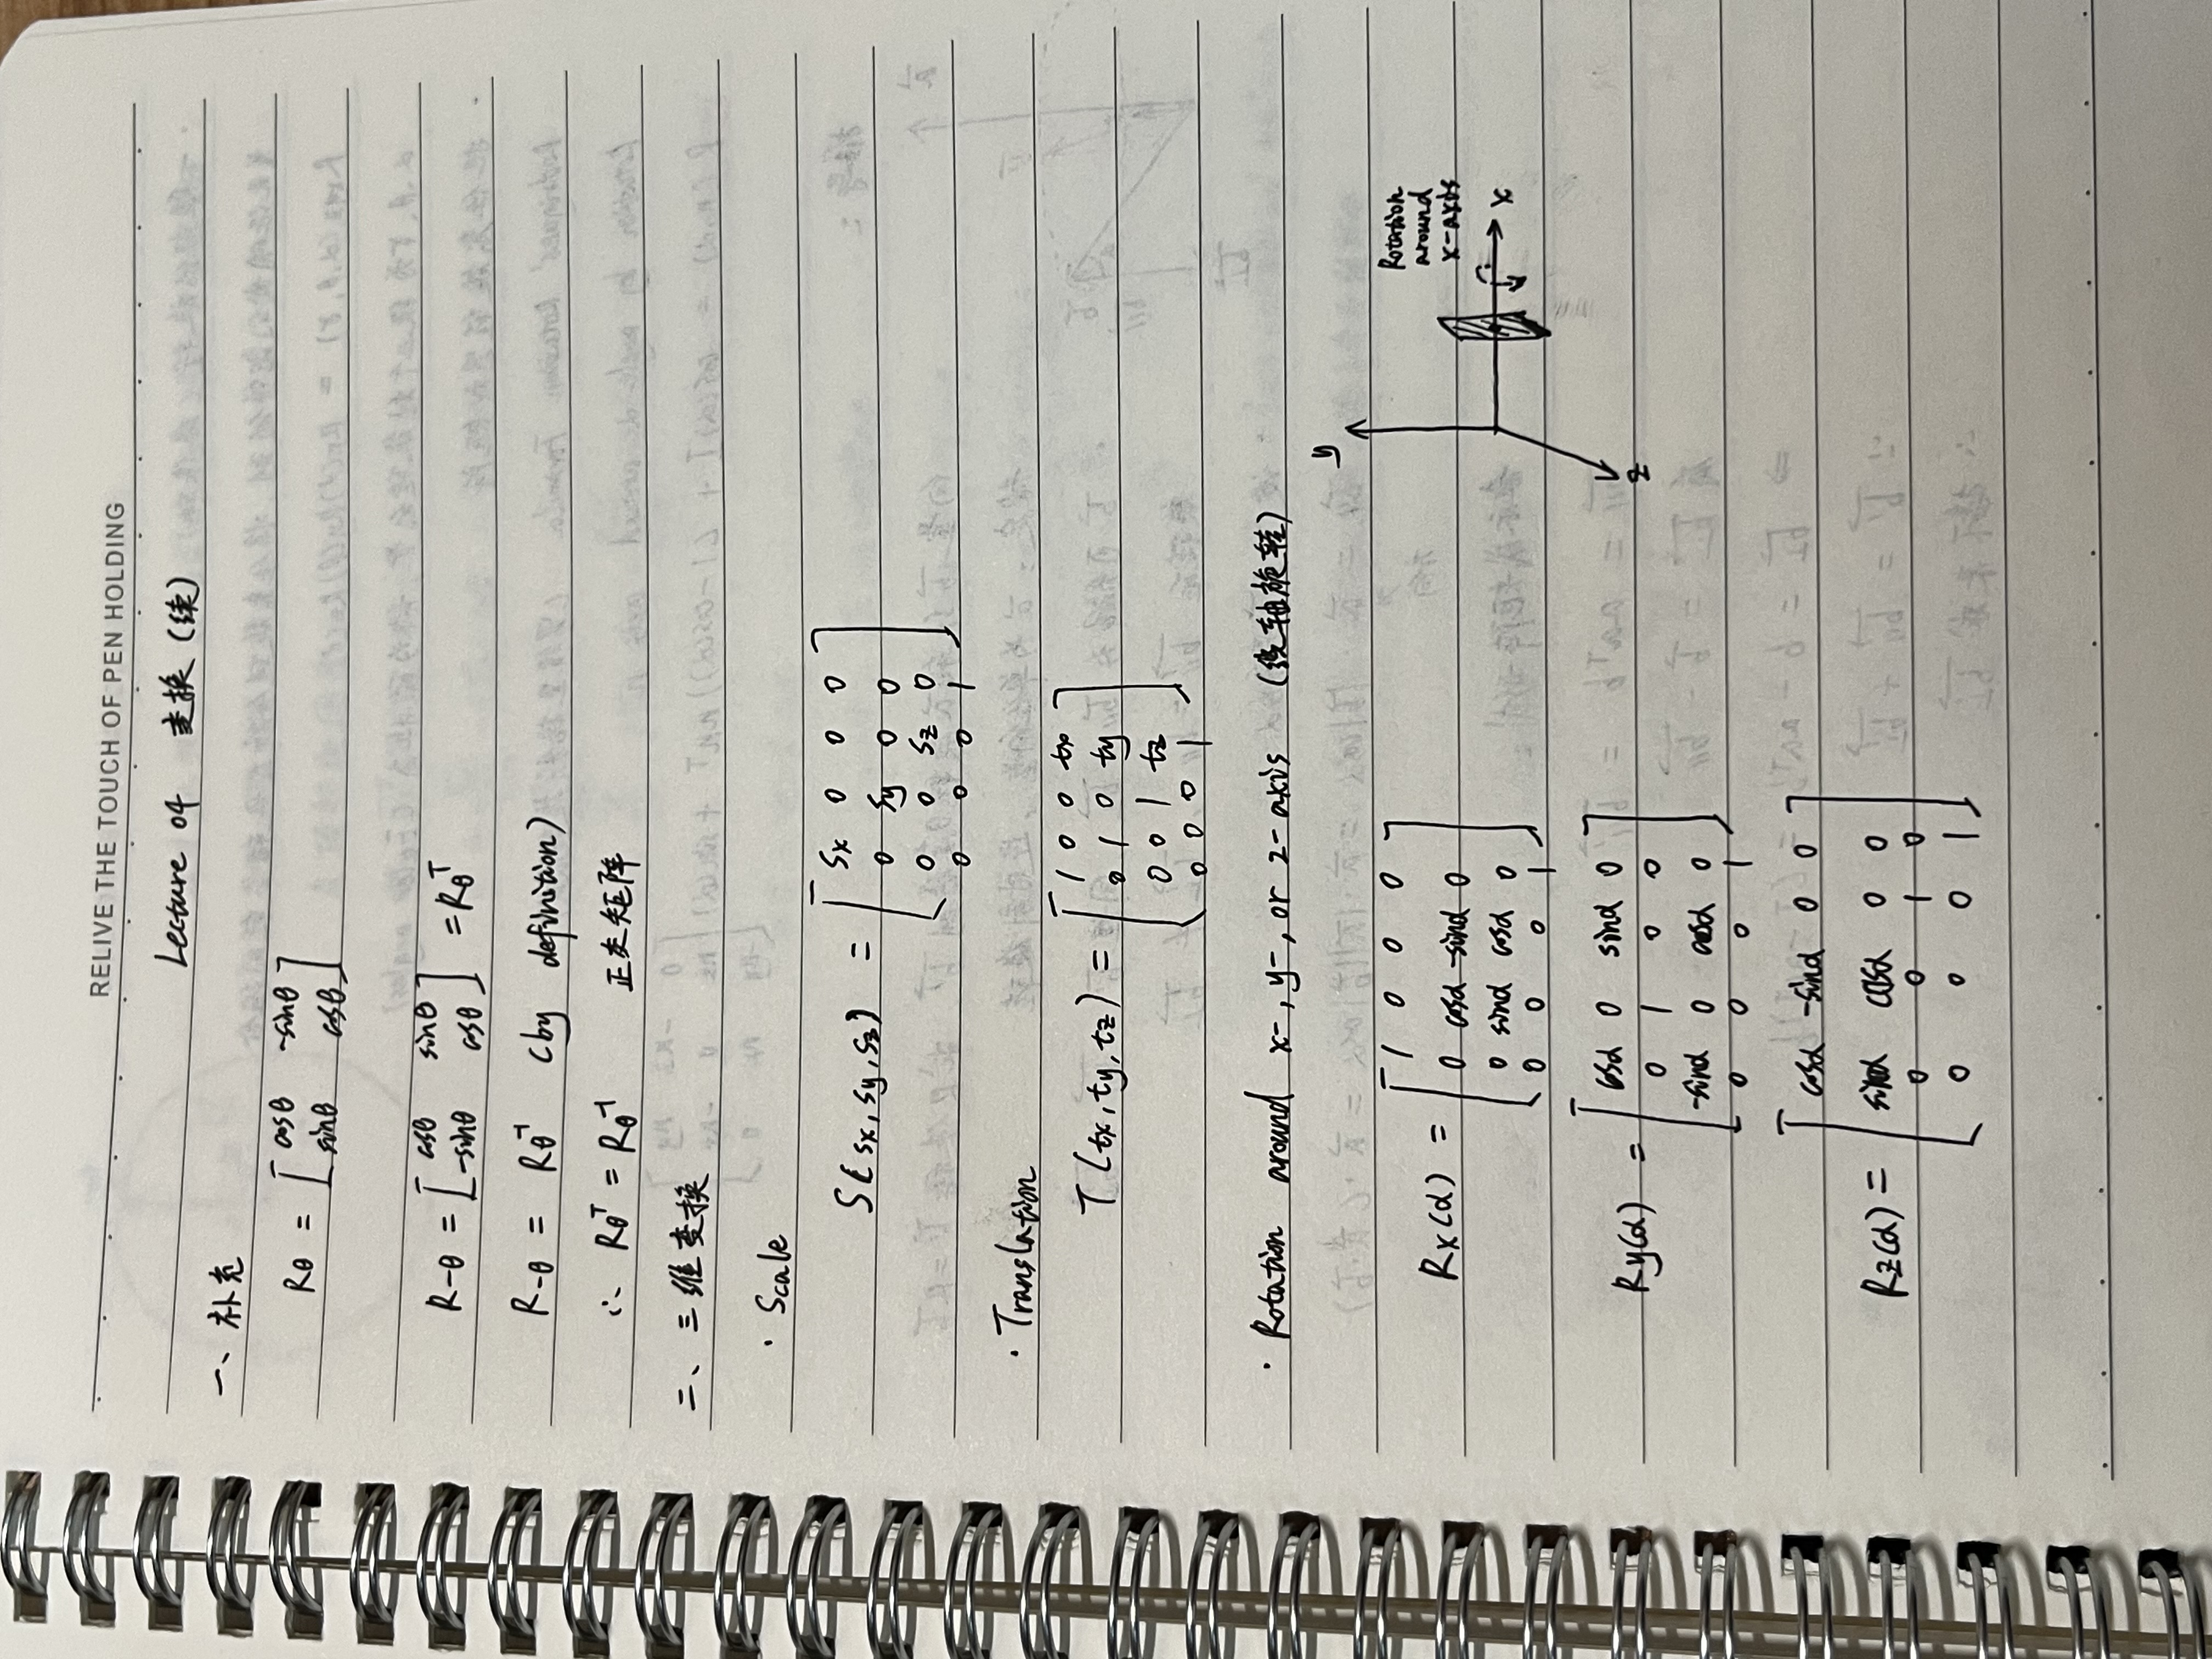 RELIVE THE TOUCH OF PEN HOLDING
Lecture 04 变换 (续)
一、补充
Rθ = [ cosθ -sinθ
sinθ cosθ ]
R-θ = [ cosθ sinθ
-sinθ cosθ ] = Rθ^T
R-θ = Rθ^-1 (by definition)
∴ Rθ^T = Rθ^-1 正交矩阵
二、三维变换
· Scale
S(sx, sy, sz) = [ sx 0 0 0
0 sy 0 0
0 0 sz 0
0 0 0 1 ]
· Translation
T(tx, ty, tz) = [ 1 0 0 tx
0 1 0 ty
0 0 1 tz
0 0 0 1 ]
· Rotation around x-, y-, or z-axis (绕轴旋转)
Rx(α) = [ 1 0 0 0
0 cosα -sinα 0
0 sinα cosα 0
0 0 0 1 ]
y
Rotation
around
x-axis
x
z
Ry(α) = [ cosα 0 sinα 0
0 1 0 0
-sinα 0 cosα 0
0 0 0 1 ]
Rz(α) = [ cosα -sinα 0 0
sinα cosα 0 0
0 0 1 0
0 0 0 1 ]